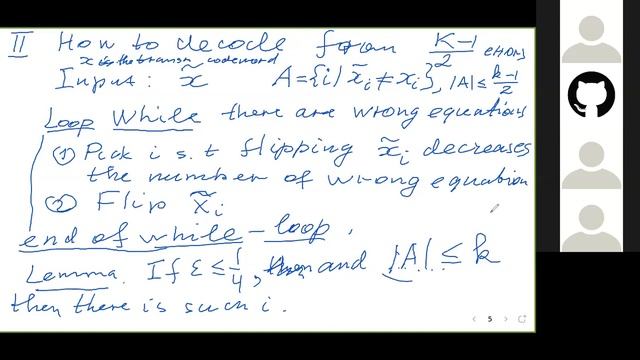 II How to decode from K-1/2 errors
x is the transm. codeword
Input: x̃ A={i | x̃ᵢ ≠ xᵢ}, |A| ≤ k-1/2
Loop While there are wrong equations
① Pick i s.t flipping x̃ᵢ decreases
the number of wrong equation
② Flip x̃ᵢ
end of while-loop.
Lemma. If ε ≤ 1/4, and |A| ≤ k
then there is such i.
5